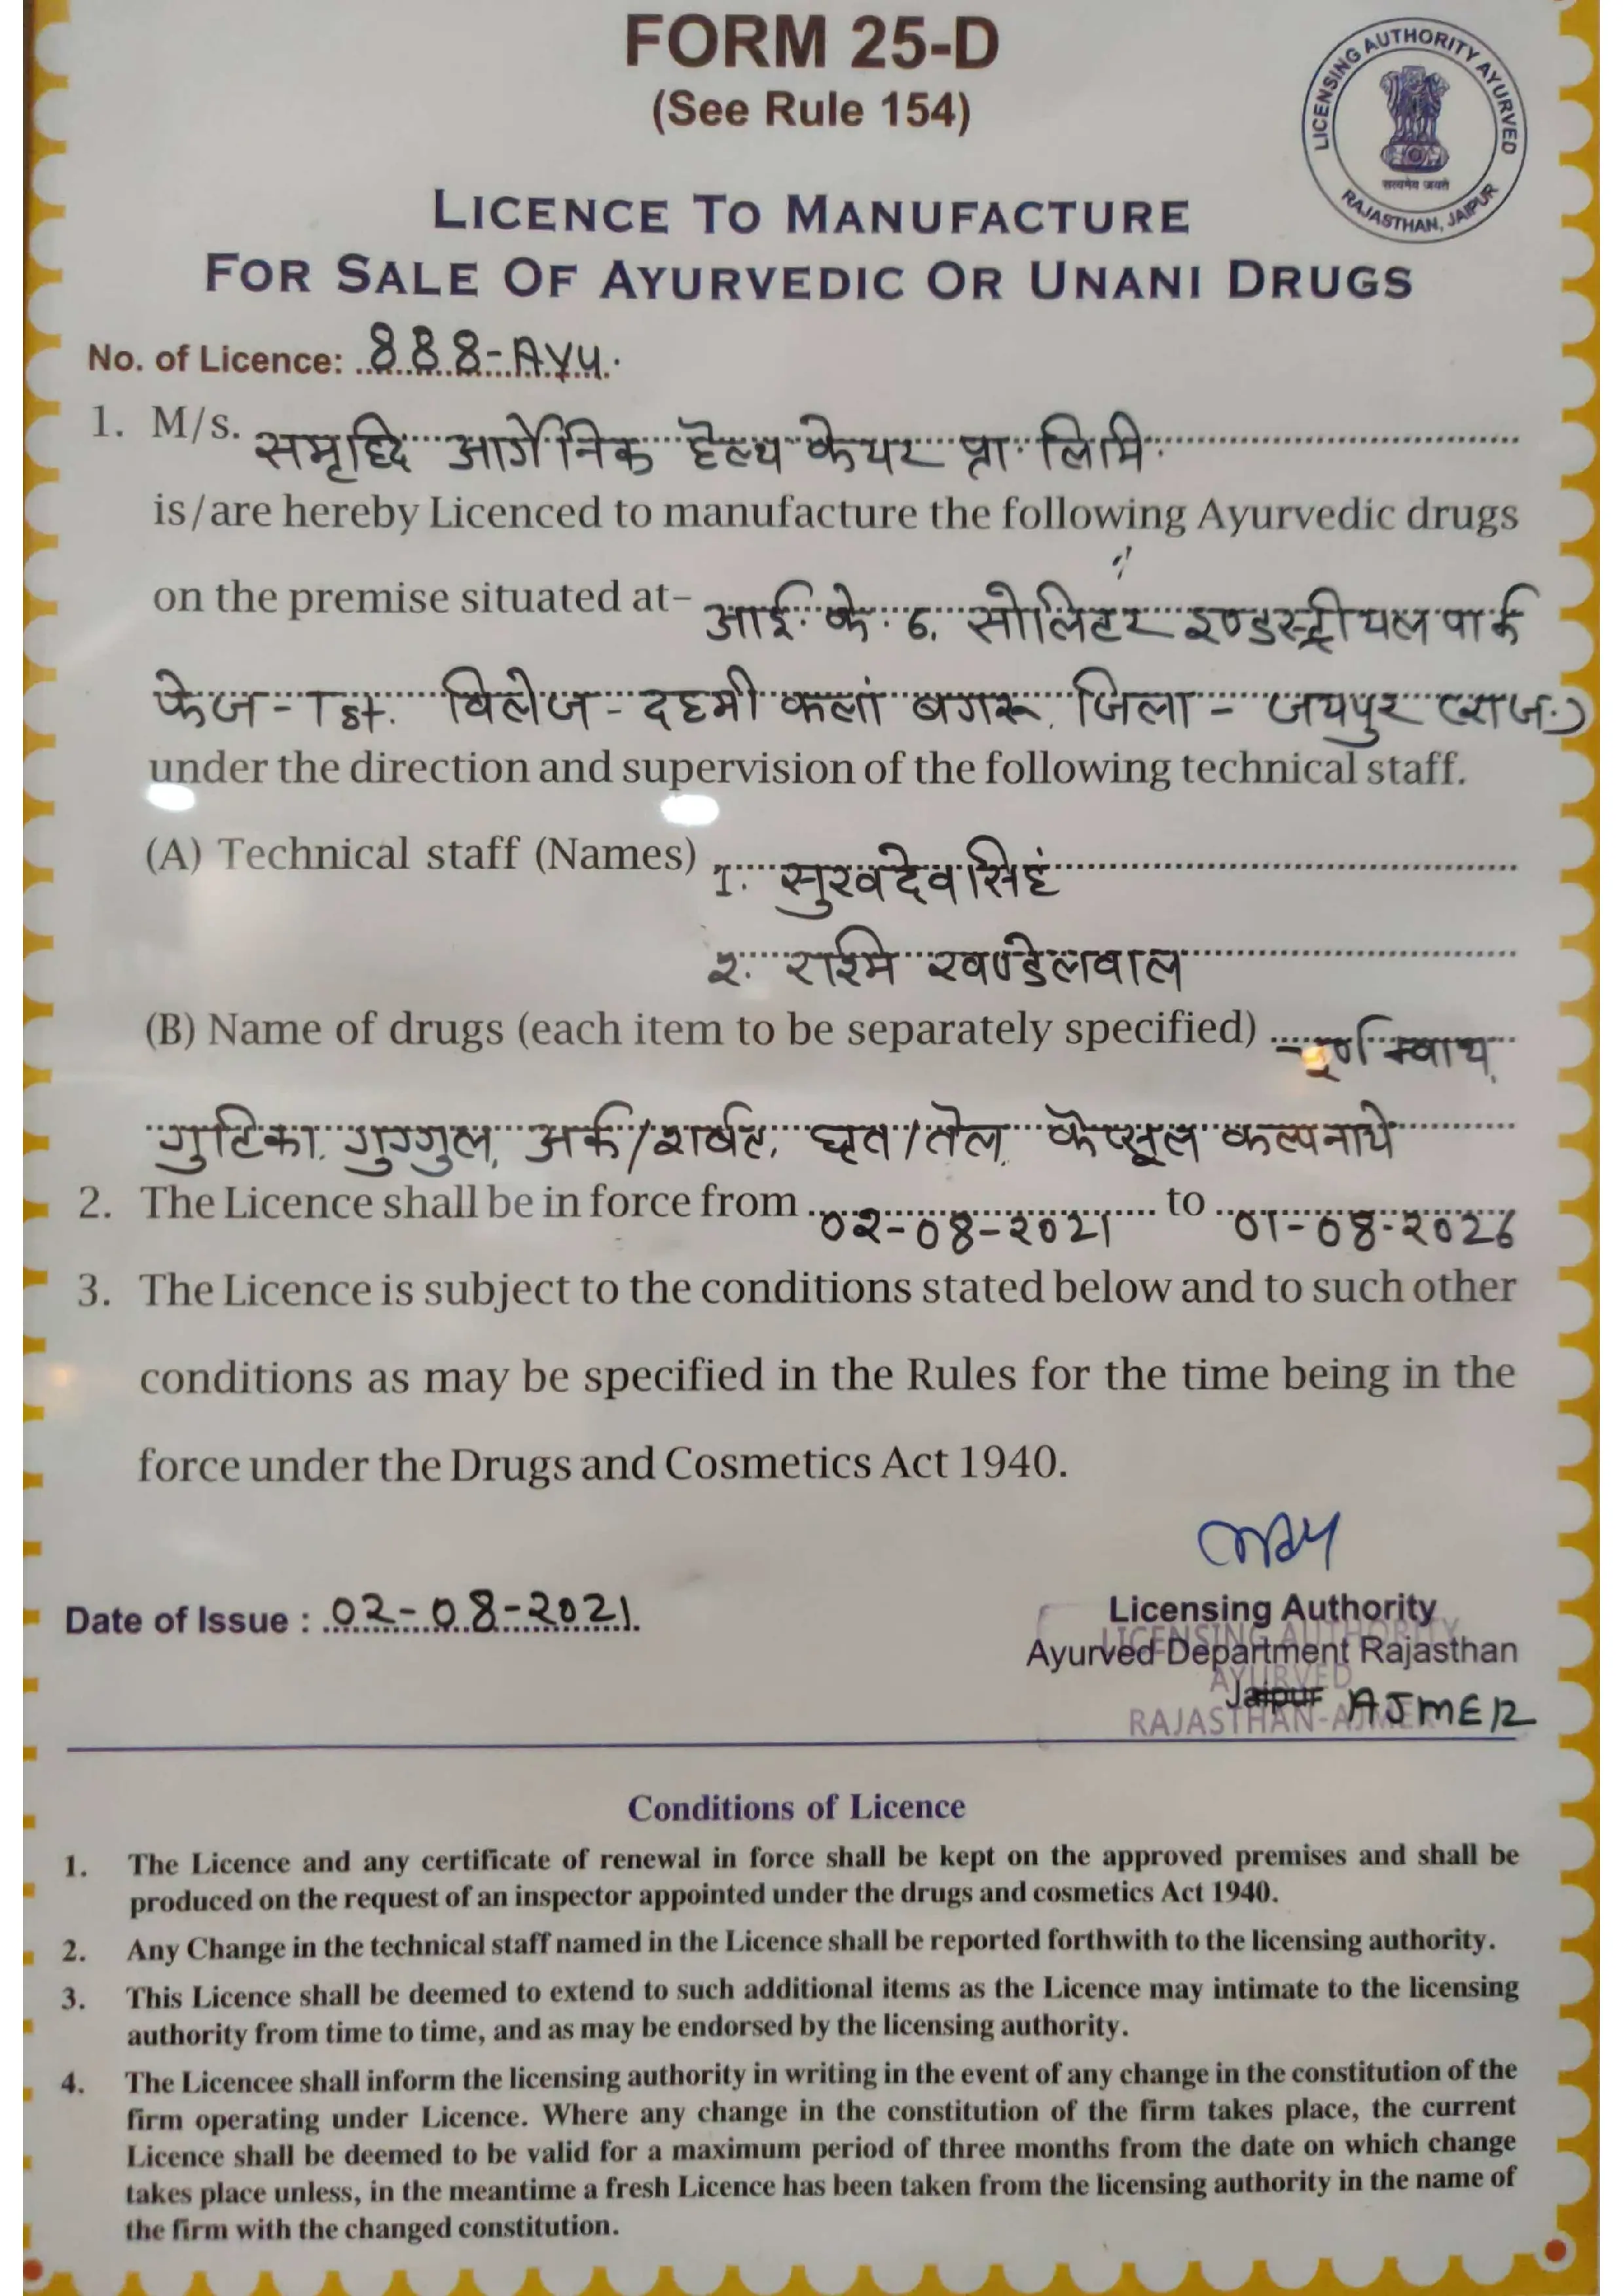 FORM 25-D
(See Rule 154)
LICENSING AUTHORITY AYURVED
सत्यमेव जयते
RAJASTHAN, JAIPUR
LICENCE TO MANUFACTURE
FOR SALE OF AYURVEDIC OR UNANI DRUGS
No. of Licence: 888-Ayu.
1. M/s. समृद्धि आर्गेनिक हेल्थ केयर प्रा. लिमि.
is/are hereby Licenced to manufacture the following Ayurvedic drugs
on the premise situated at- आई. के. 6, सोलिटर इण्डस्ट्रीयल पार्क
फेज-Ist. विलेज-दहमी कलां बगरू, जिला- जयपुर (राज.)
under the direction and supervision of the following technical staff.
(A) Technical staff (Names) 1. सुखदेव सिहं
2. राश्मि खण्डेलवाल
(B) Name of drugs (each item to be separately specified) चूर्ण क्वाथ,
गुटिका, गुग्गुल, अर्क/शर्बत, घृत/तेल, केप्सूल कल्पनाये
2. The Licence shall be in force from 02-08-2021 to 01-08-2026
3. The Licence is subject to the conditions stated below and to such other
conditions as may be specified in the Rules for the time being in the
force under the Drugs and Cosmetics Act 1940.
Date of Issue : 02-08-2021.
Licensing Authority
Ayurved Department Rajasthan
Jaipur AJMER
LICENSING AUTHORITY
AYURVED
RAJASTHAN-AJMER
Conditions of Licence
1. The Licence and any certificate of renewal in force shall be kept on the approved premises and shall be
produced on the request of an inspector appointed under the drugs and cosmetics Act 1940.
2. Any Change in the technical staff named in the Licence shall be reported forthwith to the licensing authority.
3. This Licence shall be deemed to extend to such additional items as the Licence may intimate to the licensing
authority from time to time, and as may be endorsed by the licensing authority.
4. The Licencee shall inform the licensing authority in writing in the event of any change in the constitution of the
firm operating under Licence. Where any change in the constitution of the firm takes place, the current
Licence shall be deemed to be valid for a maximum period of three months from the date on which change
takes place unless, in the meantime a fresh Licence has been taken from the licensing authority in the name of
the firm with the changed constitution.